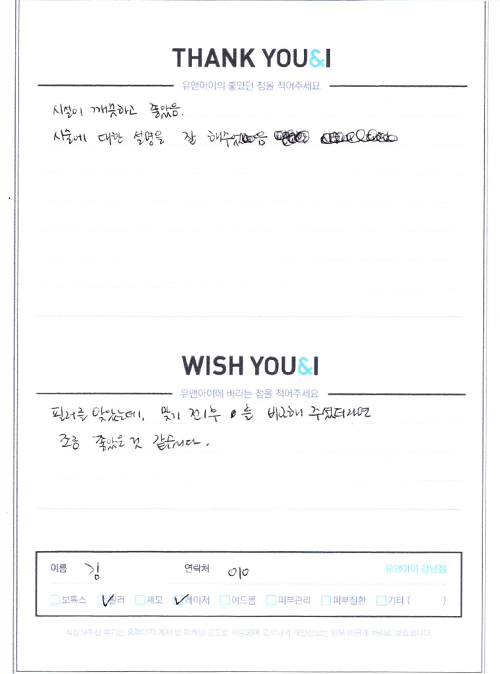 THANK YOU&I
유앤아이의 좋았던 점을 적어주세요
시설이 깨끗하고 좋았음.
시술에 대한 설명을 잘 해주었음
WISH YOU&I
유앤아이에 바라는 점을 적어주세요
필러를 맞았는데, 맞기 전/후 를 비교해 주셨더라면
조금 좋았을 것 같습니다.
이름 김 연락처 010 유앤아이 강남점
보톡스 필러 제모 레이저 여드름 피부관리 피부질환 기타 ( )